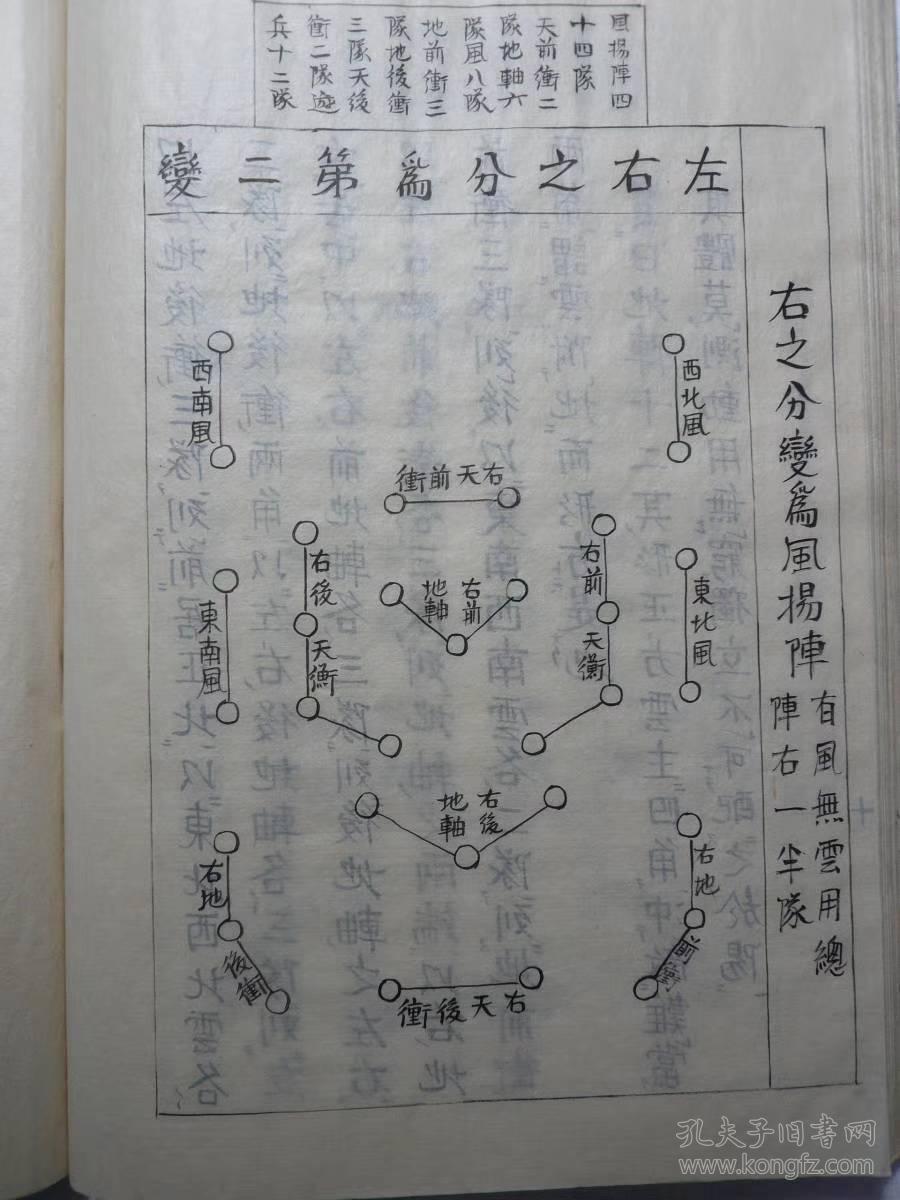 風揚陣四
十四隊
天前衝二
隊地軸六
隊風八隊
地前衝三
隊地後衝
三隊天後
衝二隊遊
兵十二隊
左右之分為第二變
右之分變為風揚陣
有風無雲用總
陣右一半隊
西北風
西南風
右天前衝
右前
天衡
右後
天衡
右前
地軸
東北風
東南風
右後
地軸
右地
前衝
右地
後衝
右天後衝
孔夫子旧書网
www.kongfz.com